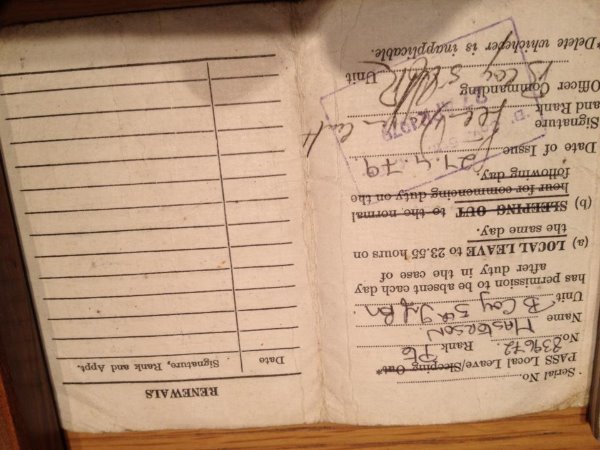 Serial No.
PASS Local Leave/Sleeping Out*
No. 839672 Rank Pte
Name MASTERSON
Unit B Coy 5th Inf Bn.
has permission to be absent each day
after duty in the case of
(a) LOCAL LEAVE to 23.55 hours on
the same day.
(b) SLEEPING OUT to the normal
hour for commencing duty on the
following day
Date of Issue 27.4.79.
Signature
and Rank
Officer Commanding
B Coy Unit
*Delete whichever is inapplicable.
RENEWALS
Date Signature, Rank and Appt.